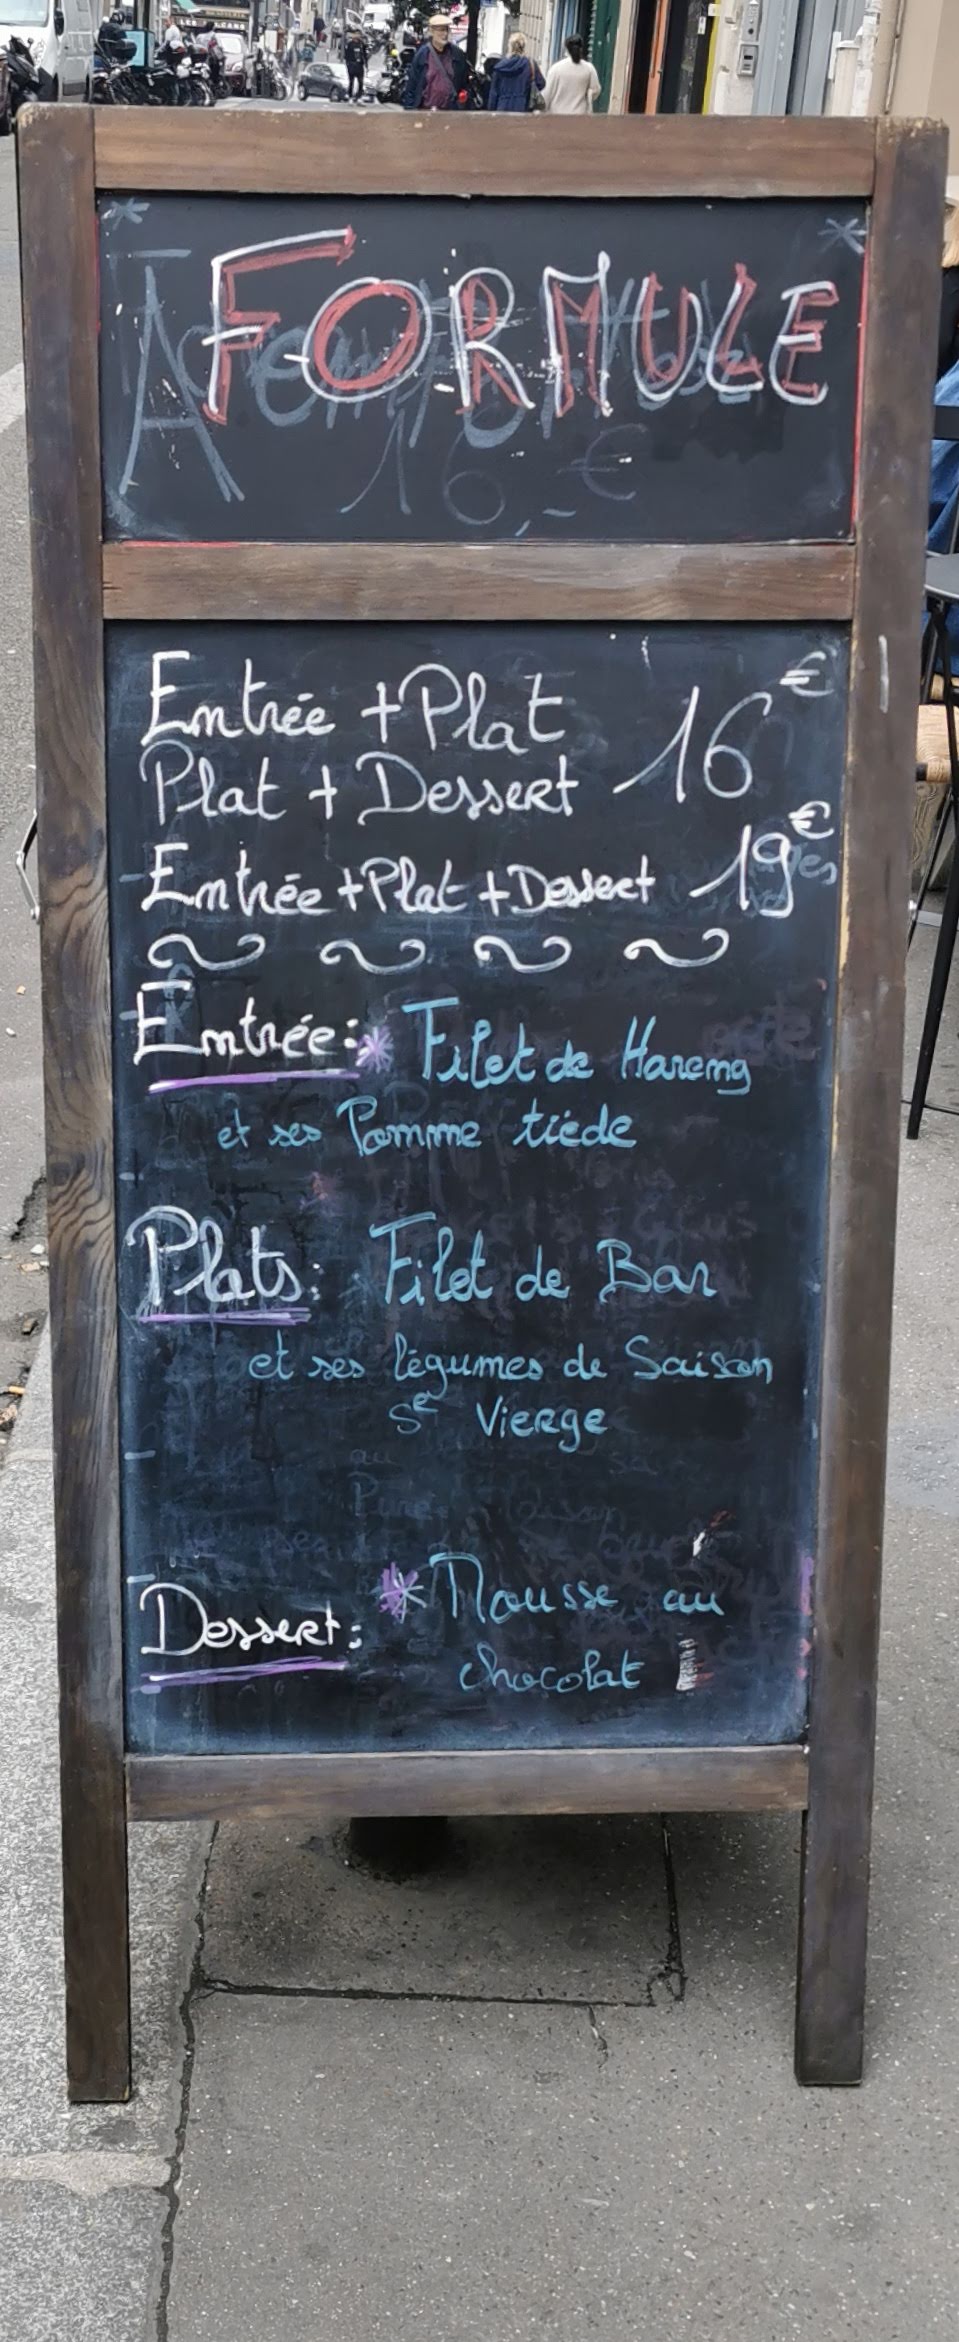 FORMULE
16,-€
Entrée + Plat
Plat + Dessert 16€
Entrée + Plat + Dessert 19€
Entrée: * Filet de Hareng
et ses Pomme tiède
Plats: Filet de Bar
et ses légumes de Saison
Sce Vierge
Dessert: * Mousse au
chocolat